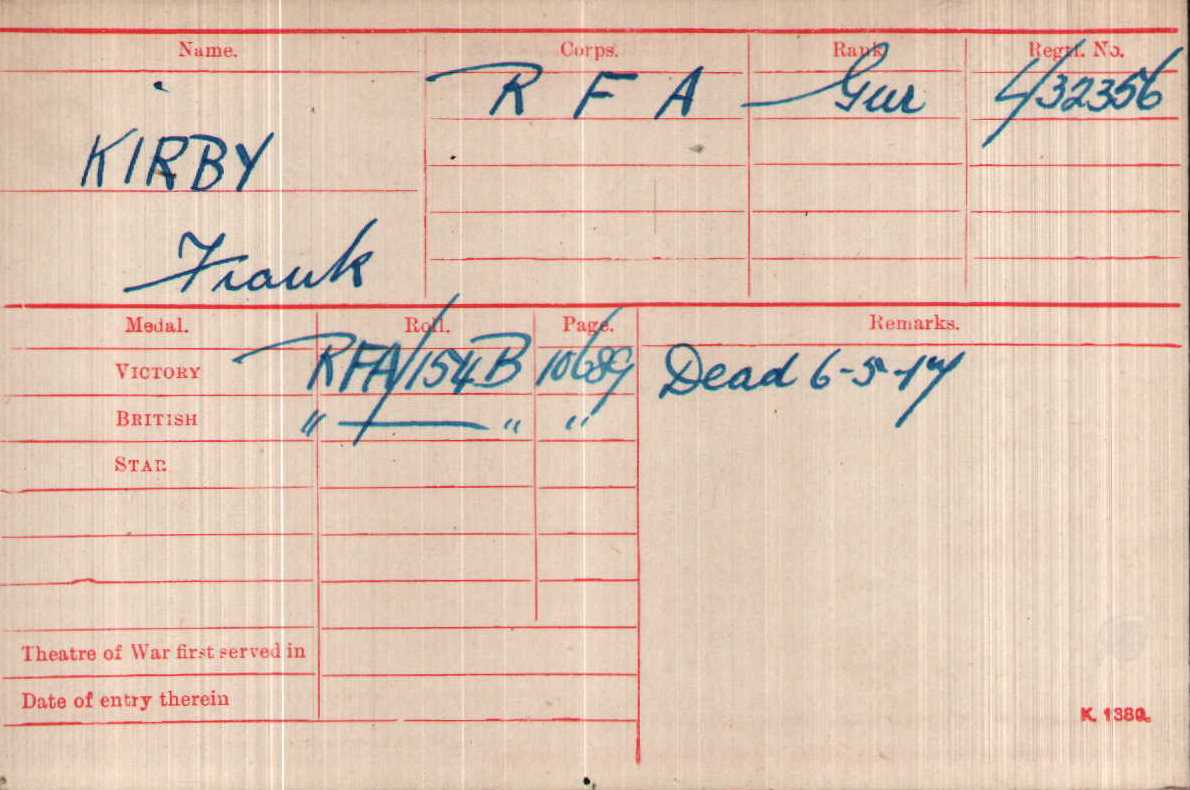 Name. Corps. Rank. Regtl. No.
R F A Gnr L/32356
KIRBY
Frank
Medal. Roll. Page. Remarks.
VICTORY RFA/154B 10689 Dead 6-5-17
BRITISH " — " "
STAR
Theatre of War first served in
Date of entry therein
K. 1380.